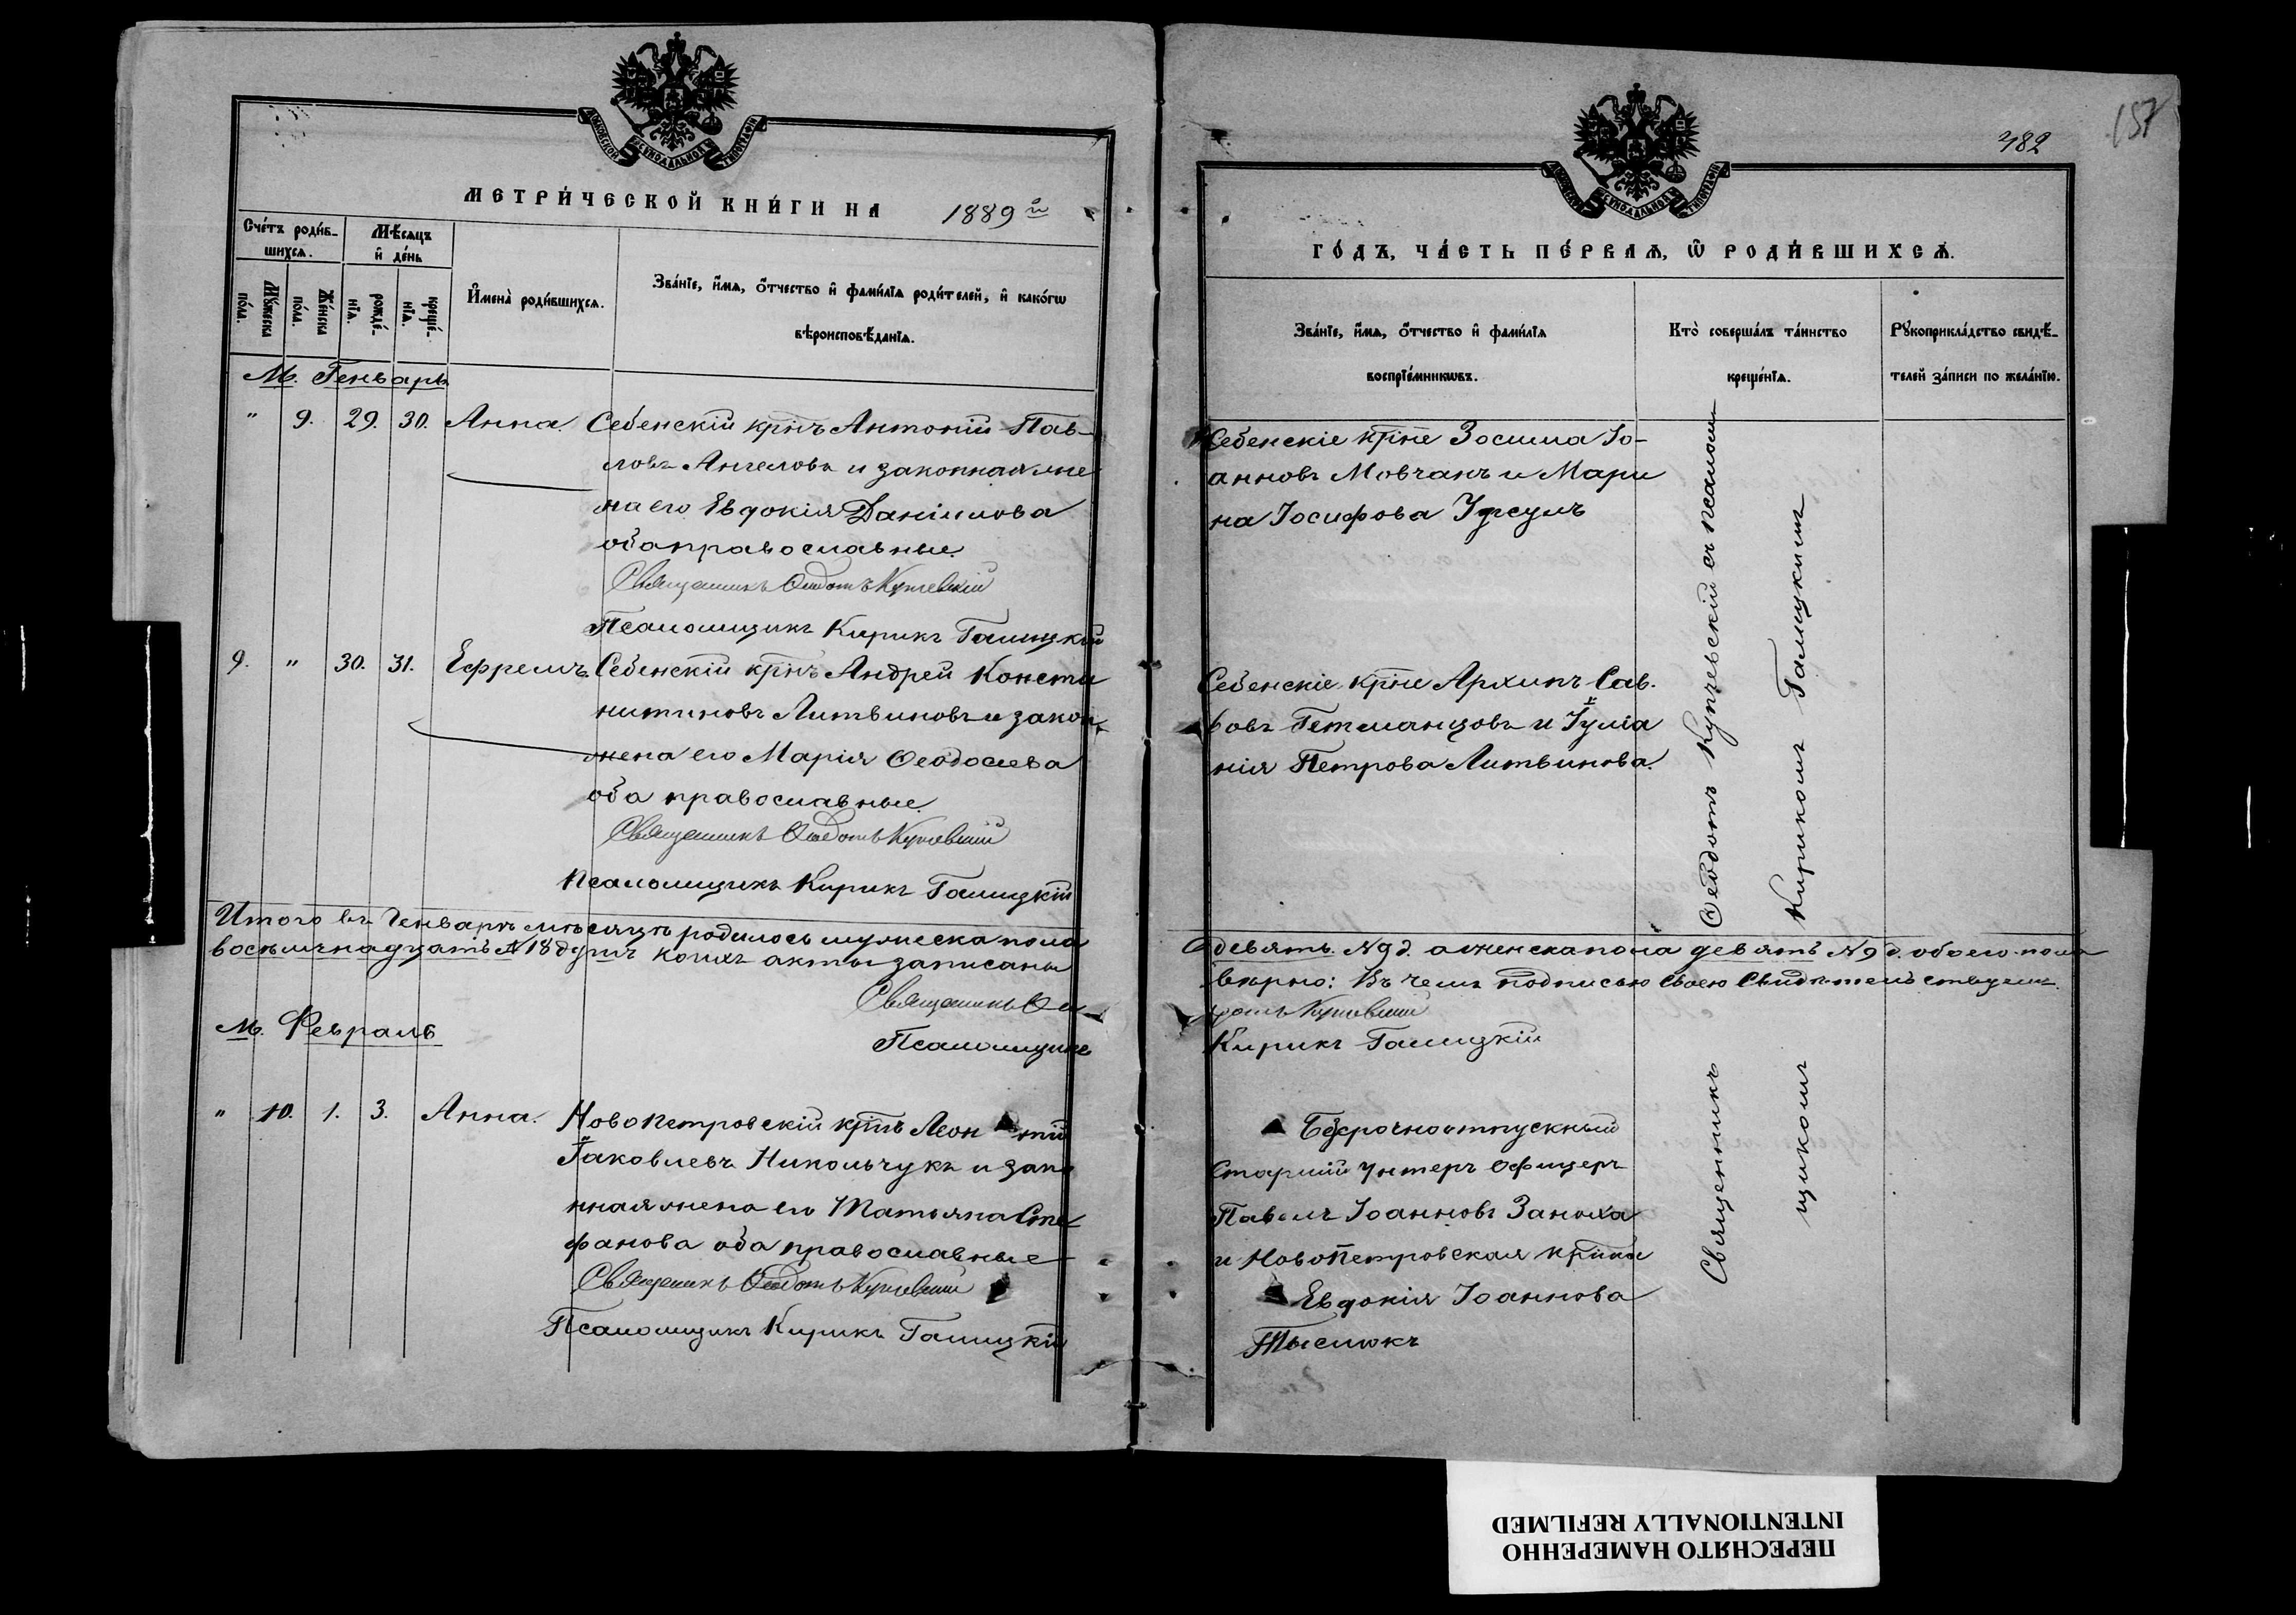 МОСКОВСКОЙ СѴНОДАЛЬНОЙ ТИПОГРАФІИ
МЕТРИ́ЧЕСКОЙ КНИ́ГИ НА 1889й
Сче́тъ роди́в-
шихся.
Мѣ́сяцъ
и҆ де́нь
Мꙋ́жеска
по́ла.
Же́нска
по́ла.
рожде́-
нїѧ.
креще́-
нїѧ.
И҆мена̀ роди́вшихсѧ.
Зва́нїе, и҆́мѧ, ѻ҆́тчество и҆ фами́лїѧ роди́телей, и҆ како́гѡ
вѣроисповѣ́данїѧ.
М. Генварь
" 9. 29. 30. Анна. Себенскій крнъ Антоній Пав-
ловъ Ангеловъ и законная же
на его Евдокія Даніилова
оба православные.
Священникъ Ѳеодотъ Купчевскій
Псаломщикъ Кирикъ Галицкій
9. " 30. 31. Ефремъ. Себенскій крнъ Андрей Конста
нтиновъ Литвиновъ и закон.
жена его Марія Ѳеодосіева
оба православные.
Священникъ Ѳеодотъ Купчевскій
Псаломщикъ Кирикъ Галицкій
Итого въ Генварѣ мѣсяцѣ родилось мужеска пола
восемьнадцать №18 душъ коихъ акты записаны
Священникъ Ѳео
Псаломщикъ
М. Февраль
" 10. 1. 3. Анна. Новопетровскій крнъ Леонтій
Іаковлевъ Никольчукъ и зако
нная жена его Татьяна Сте
фанова оба православные
Священникъ Ѳеодотъ Купчевскій
Псаломщикъ Кирикъ Галицкій
157
482
МОСКОВСКОЙ СѴНОДАЛЬНОЙ ТИПОГРАФІИ
ГО́ДЪ, ЧА́СТЬ ПЕ́РВАѦ, Ѡ҆ РОДИ́ВШИХСѦ.
Зва́нїе, и҆́мѧ, ѻ҆́тчество и҆ фами́лїѧ
воспрїе́мникѡвъ.
Кто̀ соверша́лъ та́инство
креще́нїѧ.
Рꙋкоприкла́дство свидѣ́-
телей за́писи по жела́нїю.
Себенскіе крне Зосима Іо-
анновъ Мовчанъ и Мари
на Іосифова Урсулъ
Себенскіе крне Архипъ Сав.
вовъ Гетманцовъ и Іуліа
нія Петрова Литвинова.
девять №9 д. а женска пола девять №9 д. обоего пола
вѣрно: Въ чемъ подписью своею свидѣтельствуемъ.
дотъ Купчевскій
Кирикъ Галицкій
Безсрочноотпускный
Старшій Унтеръ Офицеръ
Павелъ Іоанновъ Заноха
и Новопетровская крнка
Евдокія Іоаннова
Тыслюкъ
Священникъ Ѳеодотъ Купчевскій съ псалом
щикомъ Кирикомъ Галицкимъ
ПЕРЕСНЯТО НАМЕРЕННО
INTENTIONALLY REFILMED